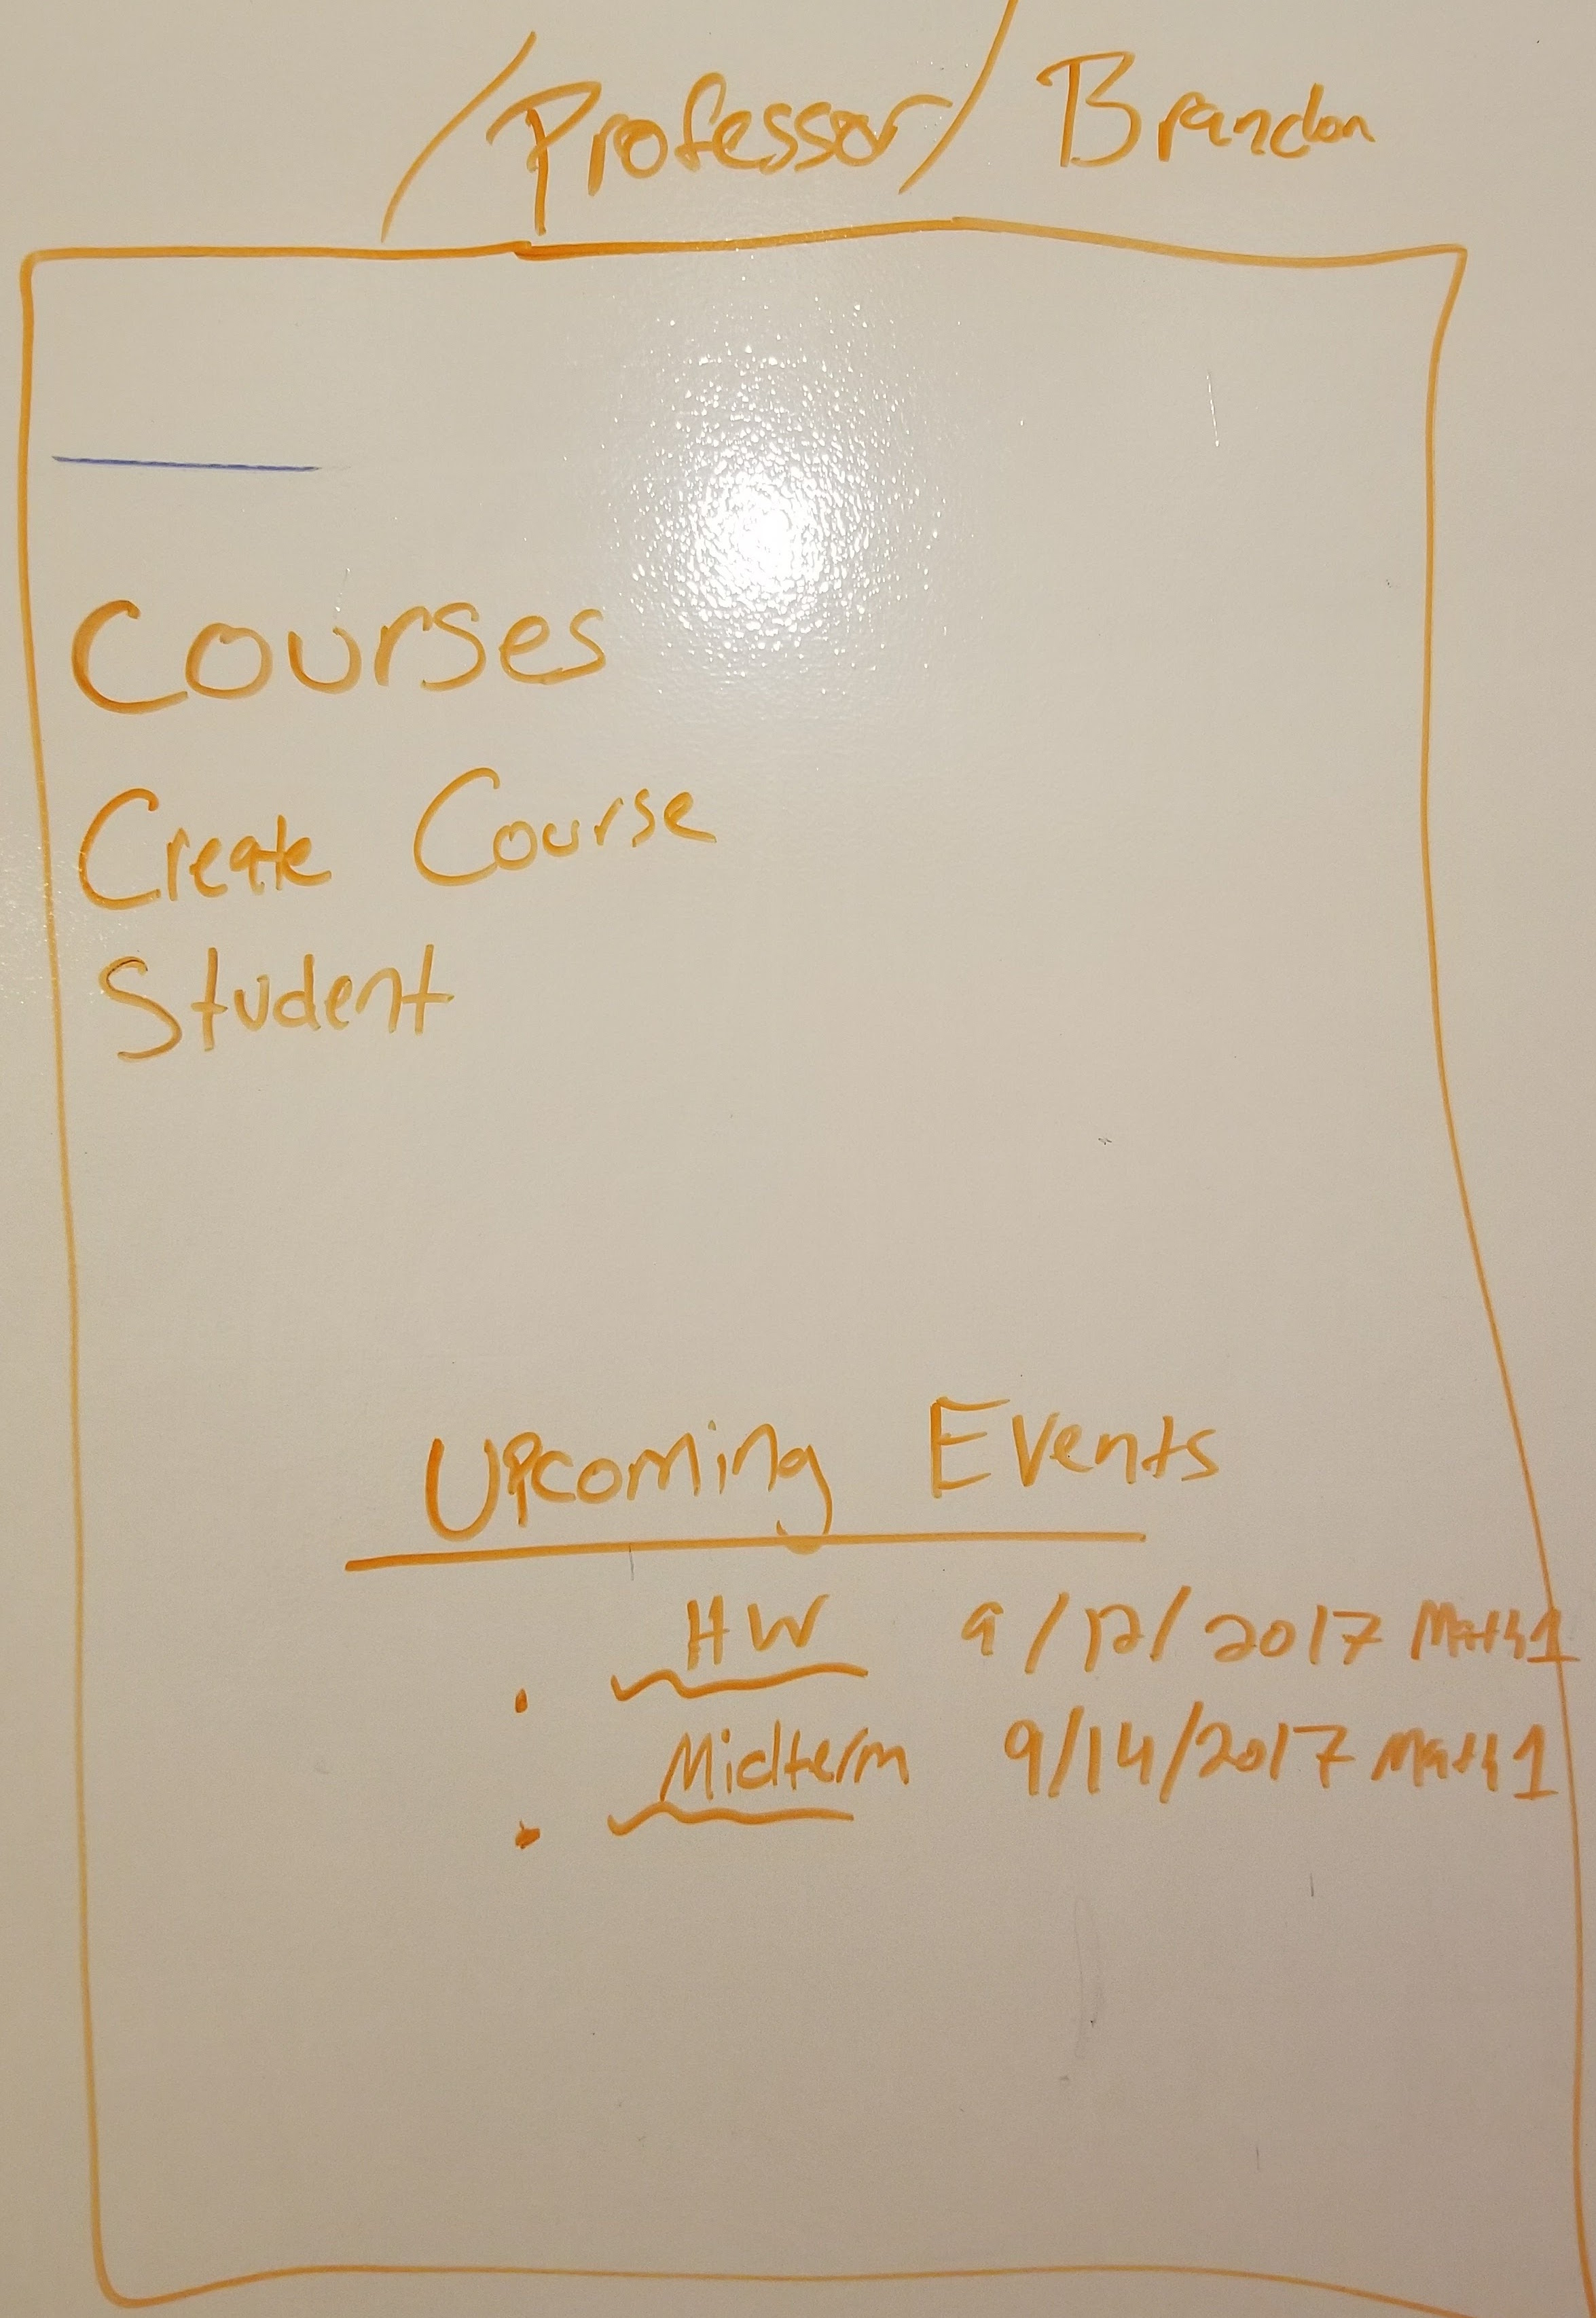 /Professor/ Brandon
Courses
Create Course
Student
Upcoming Events
HW 9/12/2017 Math1
Midterm 9/14/2017 Math1